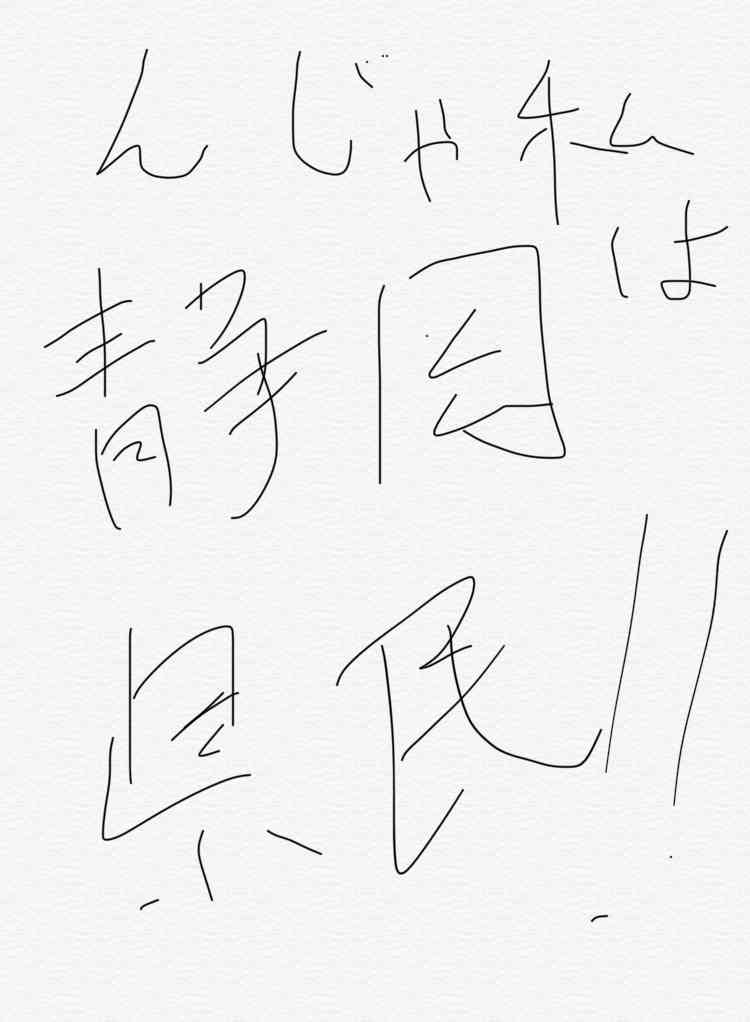 んじゃ私
は
静岡
県民!!